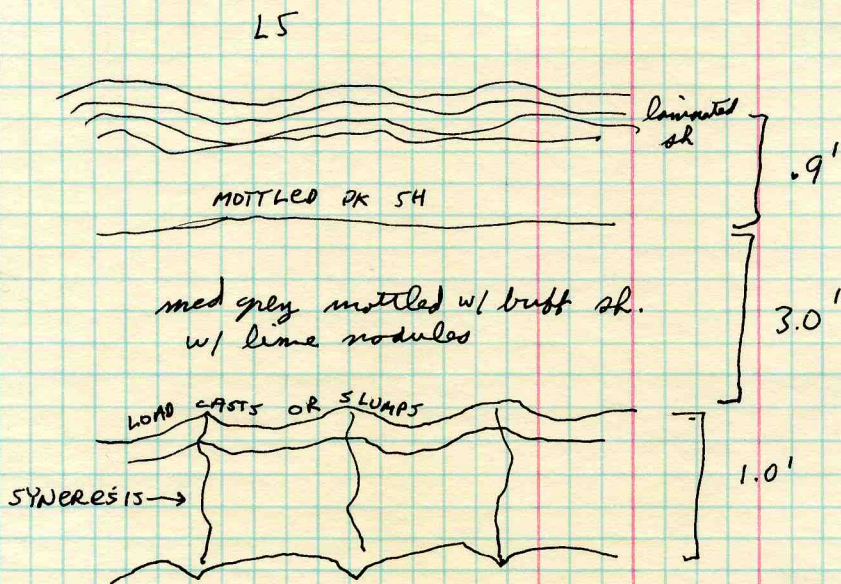 L5
laminated
sh
.9'
MOTTLED DK SH
med grey mottled w/ buff sh.
w/ lime nodules
3.0'
LOAD CASTS OR SLUMPS
1.0'
SYNERESIS→